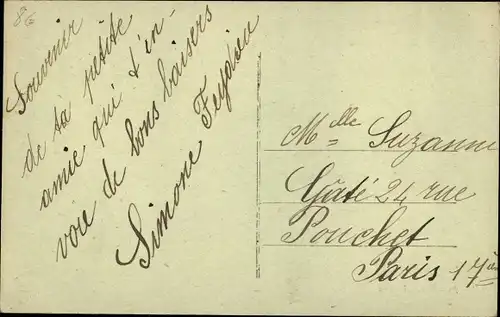 86
Souvenir
de ta petite
amie qui t'in-
voie de bons baisers
Simone Feydieu
Mlle Suzanne
Gâté 24 rue
Pouchet
Paris 17è